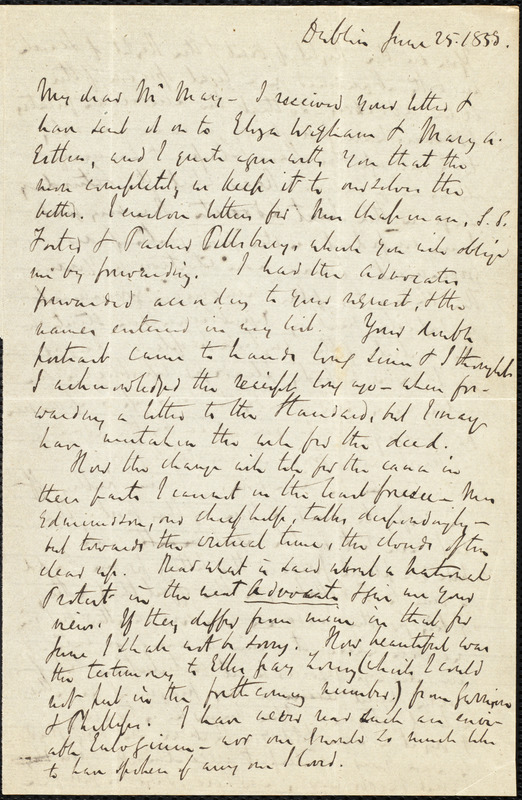 Dublin June 25. 1858.
My dear Mr May - I received your letter &
have sent it on to Eliza Wigham & Mary A.
Estlin, and I quite agree with you that the
more completely we keep it to ourselves the
better. I enclose letters for Mrs Chapman, S. S.
Foster & Parker Pillsbury, which you will oblige
me by forwarding. I had the Advocate
forwarded according to your request, & the
names entered in my list. Your double
portrait came to hand long since & I thought
I acknowledged the receipt long ago - when for-
warding a letter to the Standard, but I may
have mistaken the wish for the deed.
How the change will tell for the cause in
these parts I cannot in the least foresee - Mrs
Edmundson, our chief help, talks despondingly -
but towards the critical time, the clouds often
clear up. Read what is said about a national
Protest in the next Advocate & give me your
views. If they differ from mine in that for
June I shall not be sorry. How beautiful was
the testimony to Ellis Gray Loring (which I could
not put in the forthcoming number) from Garrison
& Phillips. I have never read such an envi-
able Eulogium - nor one I would so much like
to have spoken of any one I loved.